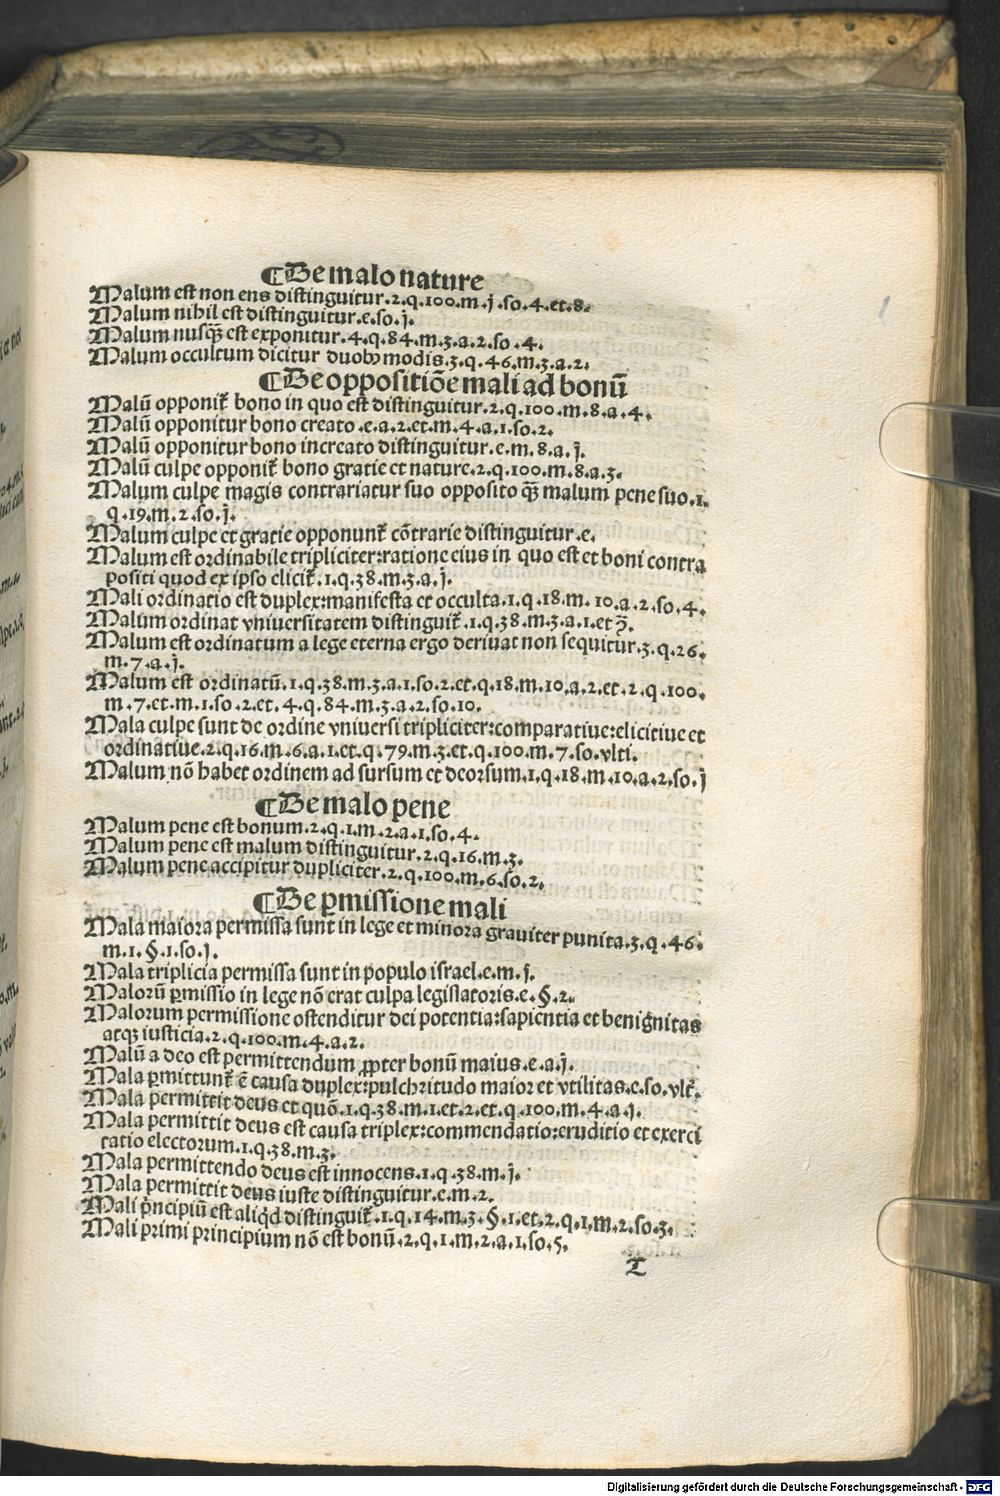 ¶De malo nature
Malum est non ens distinguitur.2.q.100.m.j.so.4.et.8.
Malum nihil est distinguitur.e.so.j.
Malum nusqꝫ est exponitur.4.q.84.m.3.a.2.so.4.
Malum occultum dicitur duobꝰ modis.3.q.46.m.3.a.2.
¶De oppositiōe mali ad bonū
Malū opponit᷑ bono in quo est distinguitur.2.q.100.m.8.a.4.
Malū opponitur bono creato.e.a.2.et.m.4.a.1.so.2.
Malū opponitur bono increato distinguitur.e.m.8.a.j.
Malū culpe opponit᷑ bono gratie et nature.2.q.100.m.8.a.3.
Malum culpe magis contrariatur suo opposito qꝫ malum pene suo.1.
q.19.m.2.so.j.
Malum culpe et gratie opponunt᷑ cōtrarie distinguitur.e.
Malum est ordinabile tripliciter:ratione eius in quo est et boni contra
positi quod ex ipso elicit᷑.1.q.38.m.3.a.j.
Mali ordinatio est duplex:manifesta et occulta.1.q.18.m.10.a.2.so.4.
Malum ordinat vniuersitatem distinguit᷑.1.q.38.m.3.a.1.et 3.
Malum est ordinatum a lege eterna ergo deriuat non sequitur.3.q.26.
m.7.a.j.
Malum est ordinatū.1.q.38.m.3.a.1.so.2.et.q.18.m.10.a.2.et.2.q.100.
m.7.et.m.1.so.2.et.4.q.84.m.3.a.2.so.10.
Mala culpe sunt de ordine vniuersi tripliciter:comparatiue:elicitiue et
ordinatiue.2.q.16.m.6.a.1.et.q.79.m.3.et.q.100.m.7.so.vlti.
Malum nō habet ordinem ad sursum et deorsum.1.q.18.m.10.a.2.so.j
¶De malo pene
Malum pene est bonum.2.q.1.m.2.a.1.so.4.
Malum pene est malum distinguitur.2.q.16.m.3.
Malum pene accipitur dupliciter.2.q.100.m.6.so.2.
¶De ꝑmissione mali
Mala maiora permissa sunt in lege et minora grauiter punita.3.q.46.
m.1.§.1.so.j.
Mala triplicia permissa sunt in populo israel.e.m.j.
Malorū ꝑmissio in lege nō erat culpa legislatoris.e.§.2.
Malorum permissione ostenditur dei potentia:sapientia et benignitas
atqꝫ iusticia.2.q.100.m.4.a.2.
Malū a deo est permittendum ꝓpter bonū maius.e.a.j.
Mala ꝑmittunt᷑ ē causa duplex:pulchritudo maior et vtilitas.e.so.vlt᷑.
Mala permittit deus et quō.1.q.38.m.1.et.2.et.q.100.m.4.a.j.
Mala permittit deus est causa triplex:commendatio:eruditio et exerci
tatio electorum.1.q.38.m.3.
Mala permittendo deus est innocens.1.q.38.m.j.
Mala permittit deus iuste distinguitur.e.m.2.
Mali pͥncipiū est aliqͥd distinguit᷑.1.q.14.m.3.§.1.et.2.q.1.m.2.so.3.
Mali primi principium nō est bonū.2.q.1.m.2.a.1.so.5.
T
Digitalisierung gefördert durch die Deutsche Forschungsgemeinschaft - DFG